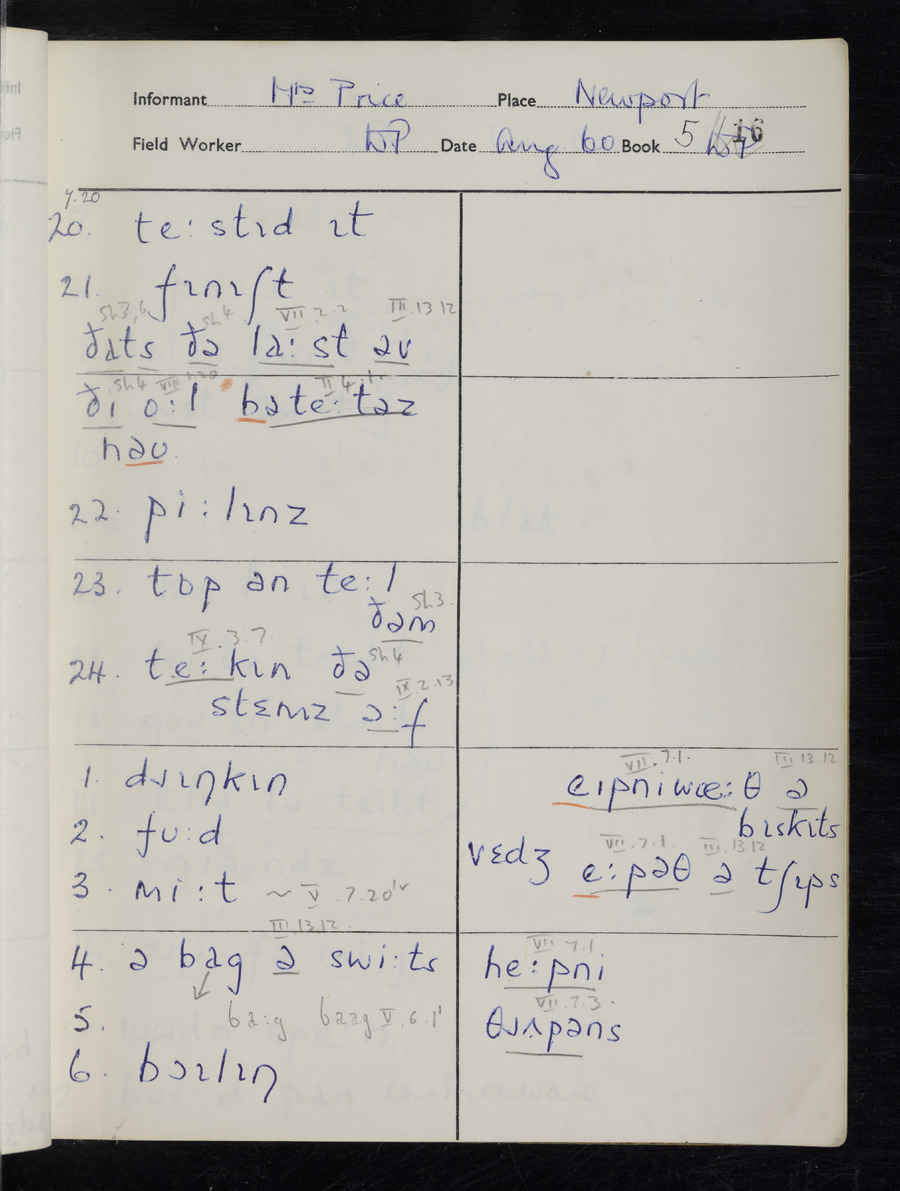 Informant Mrs Price Place Newport
Field Worker WP Date Aug 60 Book 5 16
7.20
20. te:stɪd ɪt
21. fɪnɪʃt
sh3,6 sh4 VII.2.2 III.13.12
ðats ðə la:st əv
sh4 VIII.1.20 II.4.1.
ðɪ o:l bəte:təz
nəʊ
22. pi:lɪnz
23. tɒp ən te:l
sh3.
ðəm
IX.3.7. sh4
24. te:kɪn ðə
IX.2.13
stɛmz ɔ:f
1. dɹɪŋkɪn
2. fu:d
3. mi:t ~ V.7.20
III.13.12.
4. ə bag ə swi:ts
5. ba:g baag V.6.1
6. bɔɪlɪŋ
VII.7.1. III.13.12
eɪpniwœ:θ ə
bɪskɪts
VII.7.1. III.13.12
vɛdʒ e:pəθ ə tʃɪps
VII.7.1
he:pni
VII.7.3.
θɹʌpəns